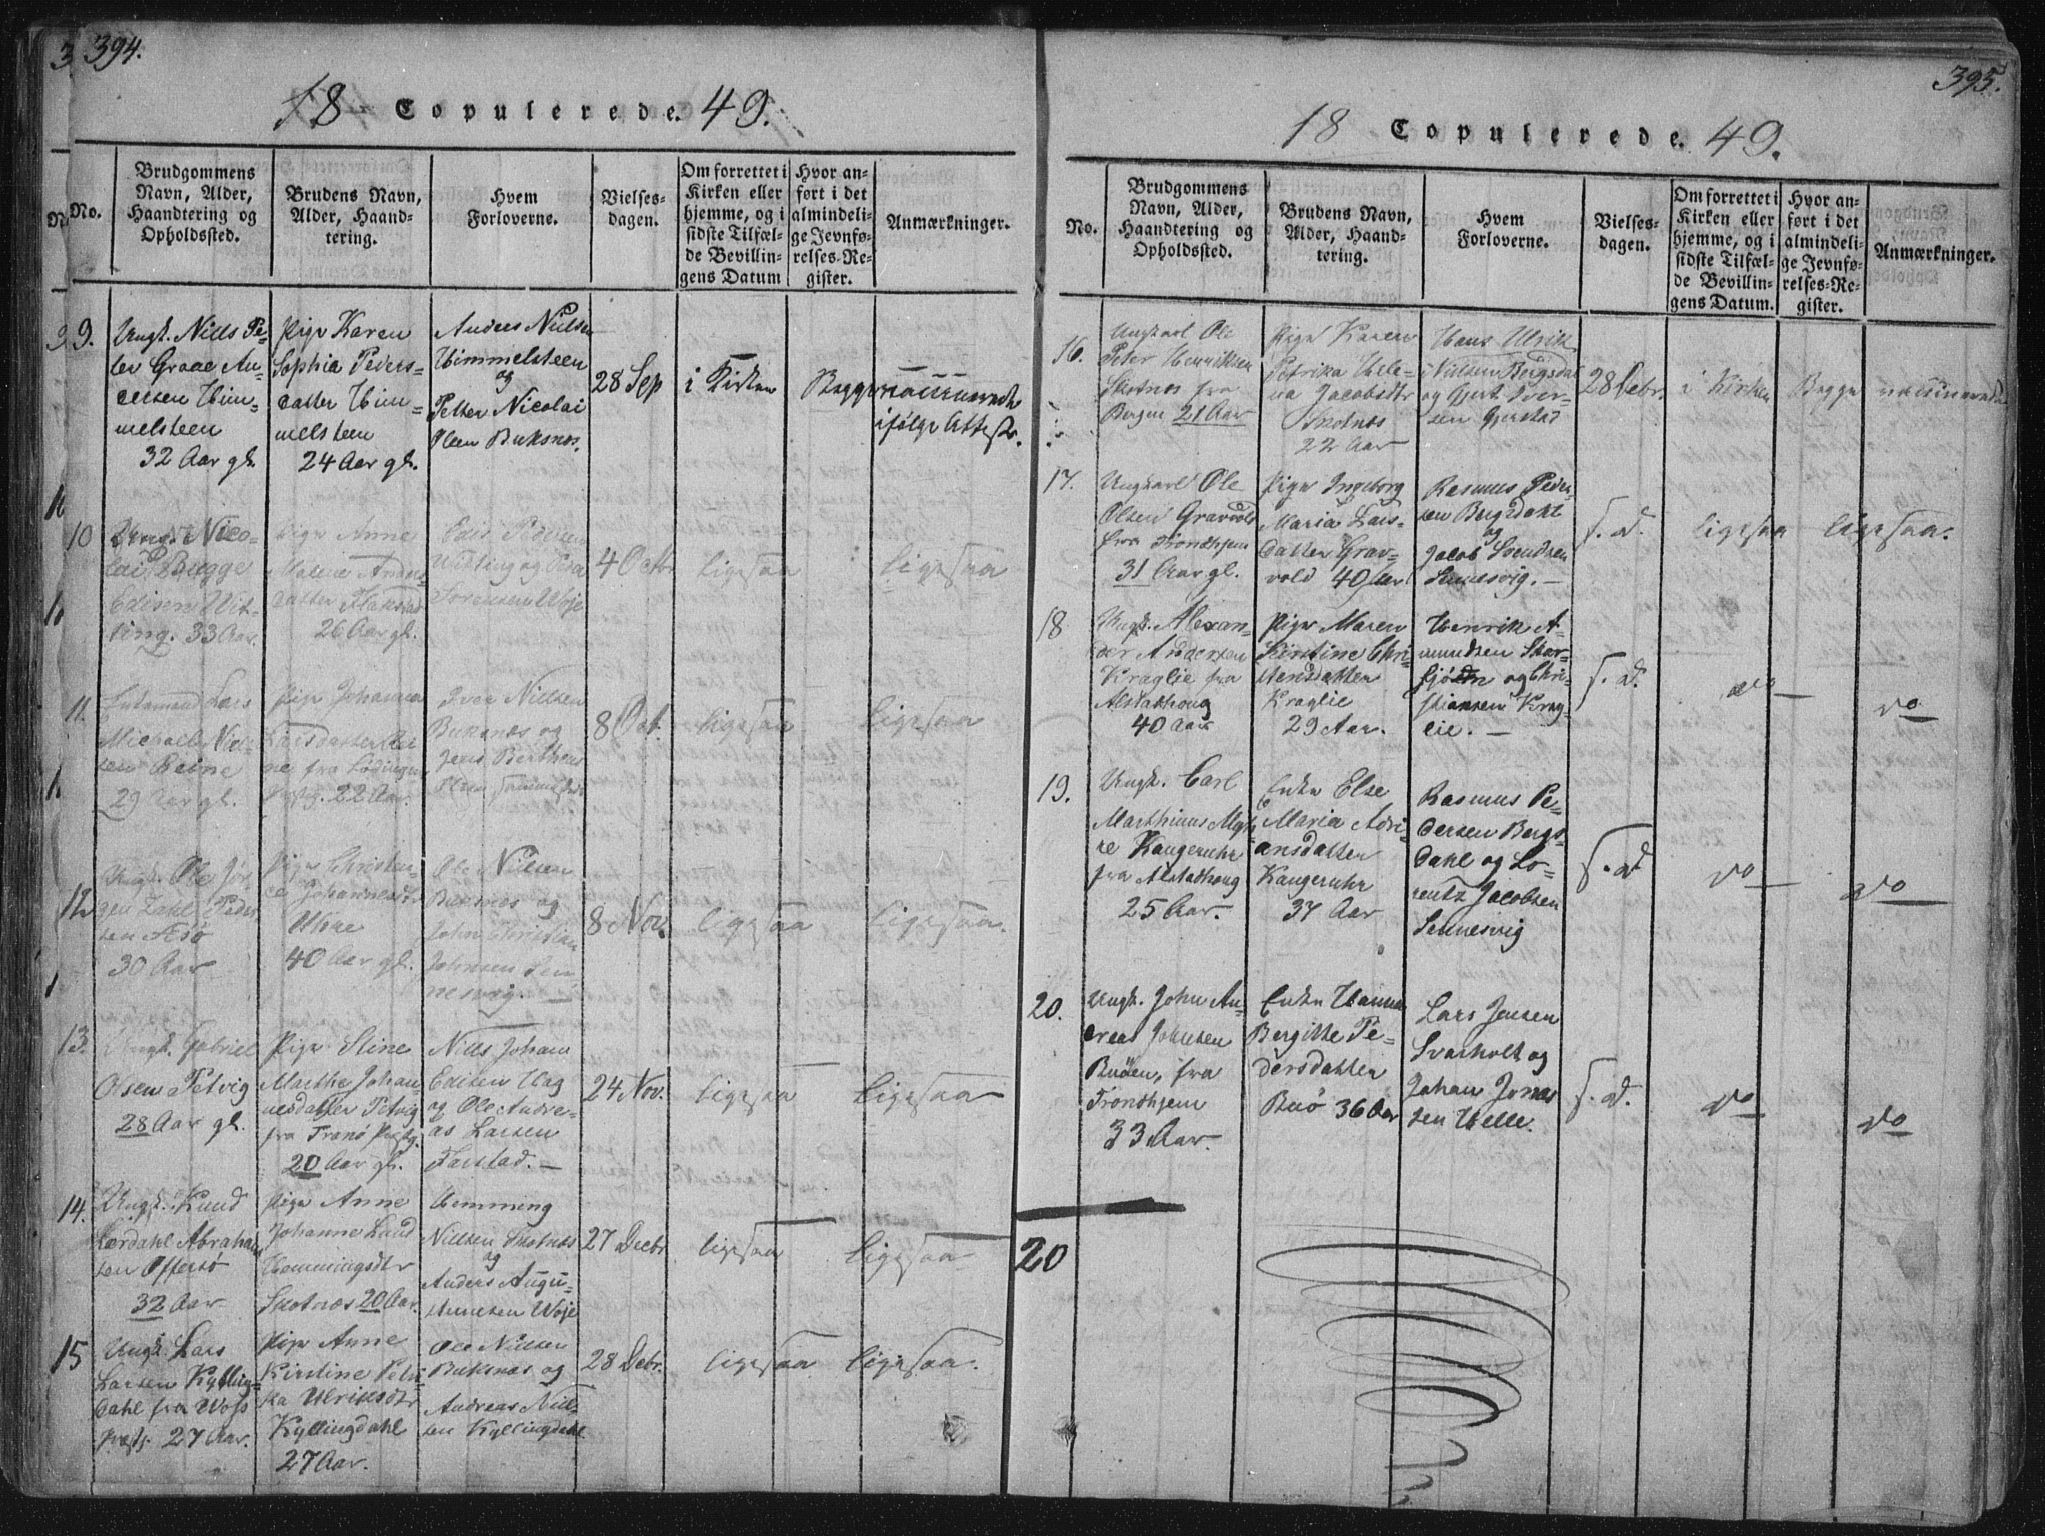 394.
18 Copulerede. 49.
No.
Brudgommens
Navn, Alder,
Haandtering og
Opholdssted.
Brudens Navn,
Alder, Haand-
tering.
Hvem
Forloverne.
Vielses-
dagen.
Om forrettet i
Kirken eller
hjemme, og i
sidste Tilfæl-
de Bevillin-
gens Datum
Hvor an-
ført i det
almindeli-
ge Jevnfø-
relses-Re-
gister.
Anmærkninger.
9.
Ungk. Nills Pe-
ter Graae An-
dersen Him-
melsteen
32 Aar gl.
Pige Karen
Sophia Peders-
datter Him-
melsteen
24 Aar gl.
Anders Nielsen
Himmelsteen
og
Petter Nicolai
Olsen Buksnæs.
28 Sep
i Kirken
Begge vaccinerede
ifölge Attester.
10
Ungk. Nico-
lai Bugge
Edisen Wit-
ting. 33 Aar.
Pige Anne
Malene Anders-
datter Flakstad
26 Aar gl.
Edis Pedersen
Widting og Peder
Sörensen Woje
4 Octbr
ligesaa
ligesaa
11.
Enkemand Lars
Michael Niel-
sen Reine
29 Aar gl.
Pige Johanna
Larsdatter Rei-
ne fra Lödingen
Prstg. 22 Aar.
Iver Nielsen
Buksnæs og
Jens Bertheus
Olsen
8 Oct.
ligesaa
ligesaa
12
Ungk. Ole Jör-
gen Zahl Peder
sen Æsö
30 Aar
Pige Christen-
ce Johannesdtr
40 Aar gl.
Ole Nielsen
Buksnæs og
John Christian
Johnsen Sen
nesvig. —
8 Nov.
ligesaa
ligesaa.
13.
Ungk. Gabriel
Olsen Petvig
28 Aar gl.
Pige Stine
Marthe Johan
nesdatter Petvig
fra Tranö Prstg.
20 Aar gl.
Nills Johan
Edisen Hag
og Ole Andre-
as Larsen
Farstad. —
24 Nov.
ligesaa
ligesaa
14.
Ungk. Knud
Lærdahl Abraham
sen Offersö
32 Aar
Pige Anne
Johanne Lund
Hemmingsdtr
Skotnæs 20 Aar.
Hemming
Nielsen Skotnæs
og
Anders Augu-
stinusen Woje
27 Decbr
ligesaa
ligesaa
15
Ungk. Lars
Larsen Kylling-
dahl fra Woss
Prstgj. 27 Aar.
Pige Anne
Kirstine Petri-
ka Ulriksdtr
Kyllingdahl
27 Aar.
Ole Nielsen
Buksnæs og
Andreas Niel-
sen Kyllingdahl
28 Debr.
ligesaa
ligesaa.
395.
18 Copulerede. 49.
No.
Brudgommens
Navn, Alder,
Haandtering og
Opholdssted.
Brudens Navn,
Alder, Haand-
tering.
Hvem
Forloverne.
Vielses-
dagen.
Om forrettet i
Kirken eller
hjemme, og i
sidste Tilfæl-
de Bevillin-
gens Datum.
Hvor an-
ført i det
almindeli-
ge Jevnfø-
relses-Re-
gister.
Anmærkninger.
16.
Ungkarl Ole
Peter Henriksen
Skotnæs fra
Bergen 21 Aar
Pige Karen
Petrika Hele-
na Jacobsdtr
Skotnæs
22 Aar
Hans Ulrik
Nielsen Bergsdal
og Gjert Iver-
sen Gjerstad
28 Debr.
i Kirken
Begge vaccinerede
17.
Ungkarl Ole
Olsen Gravvold
fra Trondhjem
31 Aar gl.
Pige Ingeborg
Maria Lars-
datter Grav-
vold 40 Aar
Rasmus Peder-
sen Bergsdahl
og
Jacob Svendsen
Sennesvig. —
S. D.
ligesaa
ligesaa.
18
Ungk. Alexan-
der Andersen
Kraglie fra
Alstahoug
40 Aar
Pige Maren
Kirstine Chri-
stensdatter
Kraglie
29 Aar.
Henrik A-
mundsen Star-
fjorn og Chri-
stiansen Krag-
lie. —
S. D.
do —
do
19.
Ungk. Carl
Marthinus Myh-
re Kangeruhr
fra Alstahoug
25 Aar.
Enke Else
Maria Adri-
ansdatter
Kangeruhr
37 Aar
Rasmus Pe-
dersen Bergs-
dahl og Lo-
rentz Jacobsen
Sennesvig
S. D
do
do
20.
Ungk. John An-
dreas Johnsen
Buöen, fra
Trondhjem
33 Aar.
Enke Hanna
Bergitte Pe-
dersdatter
Buö 36 Aar
Lars Jensen
Svarholt og
Johan Jonas
sen Helle.
S. D.
do
do
20